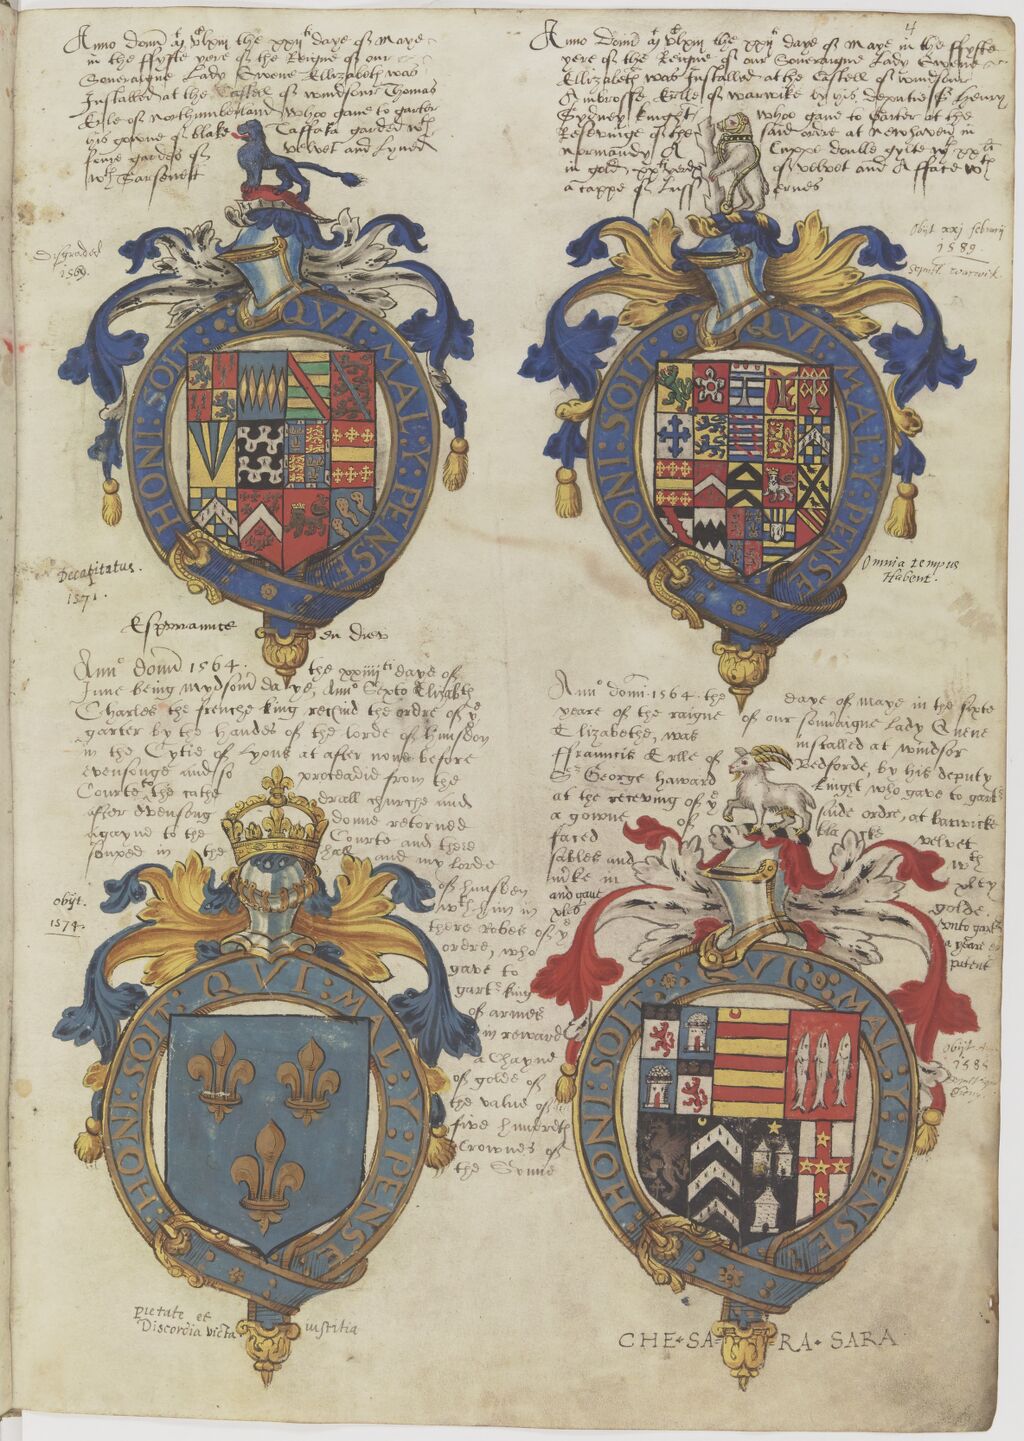 4
Anno Domi the xxii daye of Maye
in the ffyfte yere of the Reigne of our
Soveraigne Lady Quene Ellizabeth was
Installed at the Castell of windsour Thomas
Erle of Northumberland whoo gave to garter
his gowne of blake Taffata garded wth
velvet and Lyned
wth Sarsenett
Disgraded
1569
HONI · SOIT · QVI · MAL · Y · PENSE
Decapitatus.
1571.
Esperannce en Diev
Anno Domi the xxii daye of Maye in the ffyfte
yere of the Reigne of our Soveraigne Lady Quene
Ellizabeth was Installed at the Castell of windsour
Ambrosse Erlle of warwike by his Deputie Sr Henry
Sydney knight whoo gave to Garter at the
Resevinge of the said order at Newhaven in
Normandy A Cuppe doulle gylte wth xxli
in gold of velvet and A fface wth
a cappe of Luss ernes
Obijt xxi februarij
1589.
sepult warwick
HONI · SOIT · QVI · MAL · Y · PENSE
Omnia tempus
Habent.
Anno domi 1564. the xxiiiiti daye of
June being mydsomer daye, Anno Sexto Elizabeth
Charles the frenche king receiud the ordre of ye
garter by the handes of the lorde of hunsdon
in the Cytie of Lyons at after none before
evensonge and so proceadid from the
Courte to the cathe drall churche and
after evensong donne retorned
agayne to the Courte and there
souped in the hall and my lorde
of hunsden
wth him in
there Robes of ye
ordre, who
gave to
gartr king
of armes
in reward
a Chayne
of golde of
the value of
five hundreth
Crownes of
the Sonne
obijt.
1574.
HONI · SOIT · QVI · MAL · Y · PENSE
pietate et iustitia
Discordia victa
Anno domi 1564. the daye of maye in the sixte
yeare of the raigne of our souveraigne Lady Quene
Elizabethe, was installed at windsor
ffrauncis Erlle of Bedforde, by his deputy
Sr George Haward knight who gave to gartr
at the receving of ye saide ordre, at barwicke
a gowne of bla cke velvet
faced wth
sables and
and gave
golde.
vnto gartr
a yeare by
patent
Obijt
1585
HONI · SOIT · QVI · MAL · Y · PENSE
CHE · SA RA · SARA